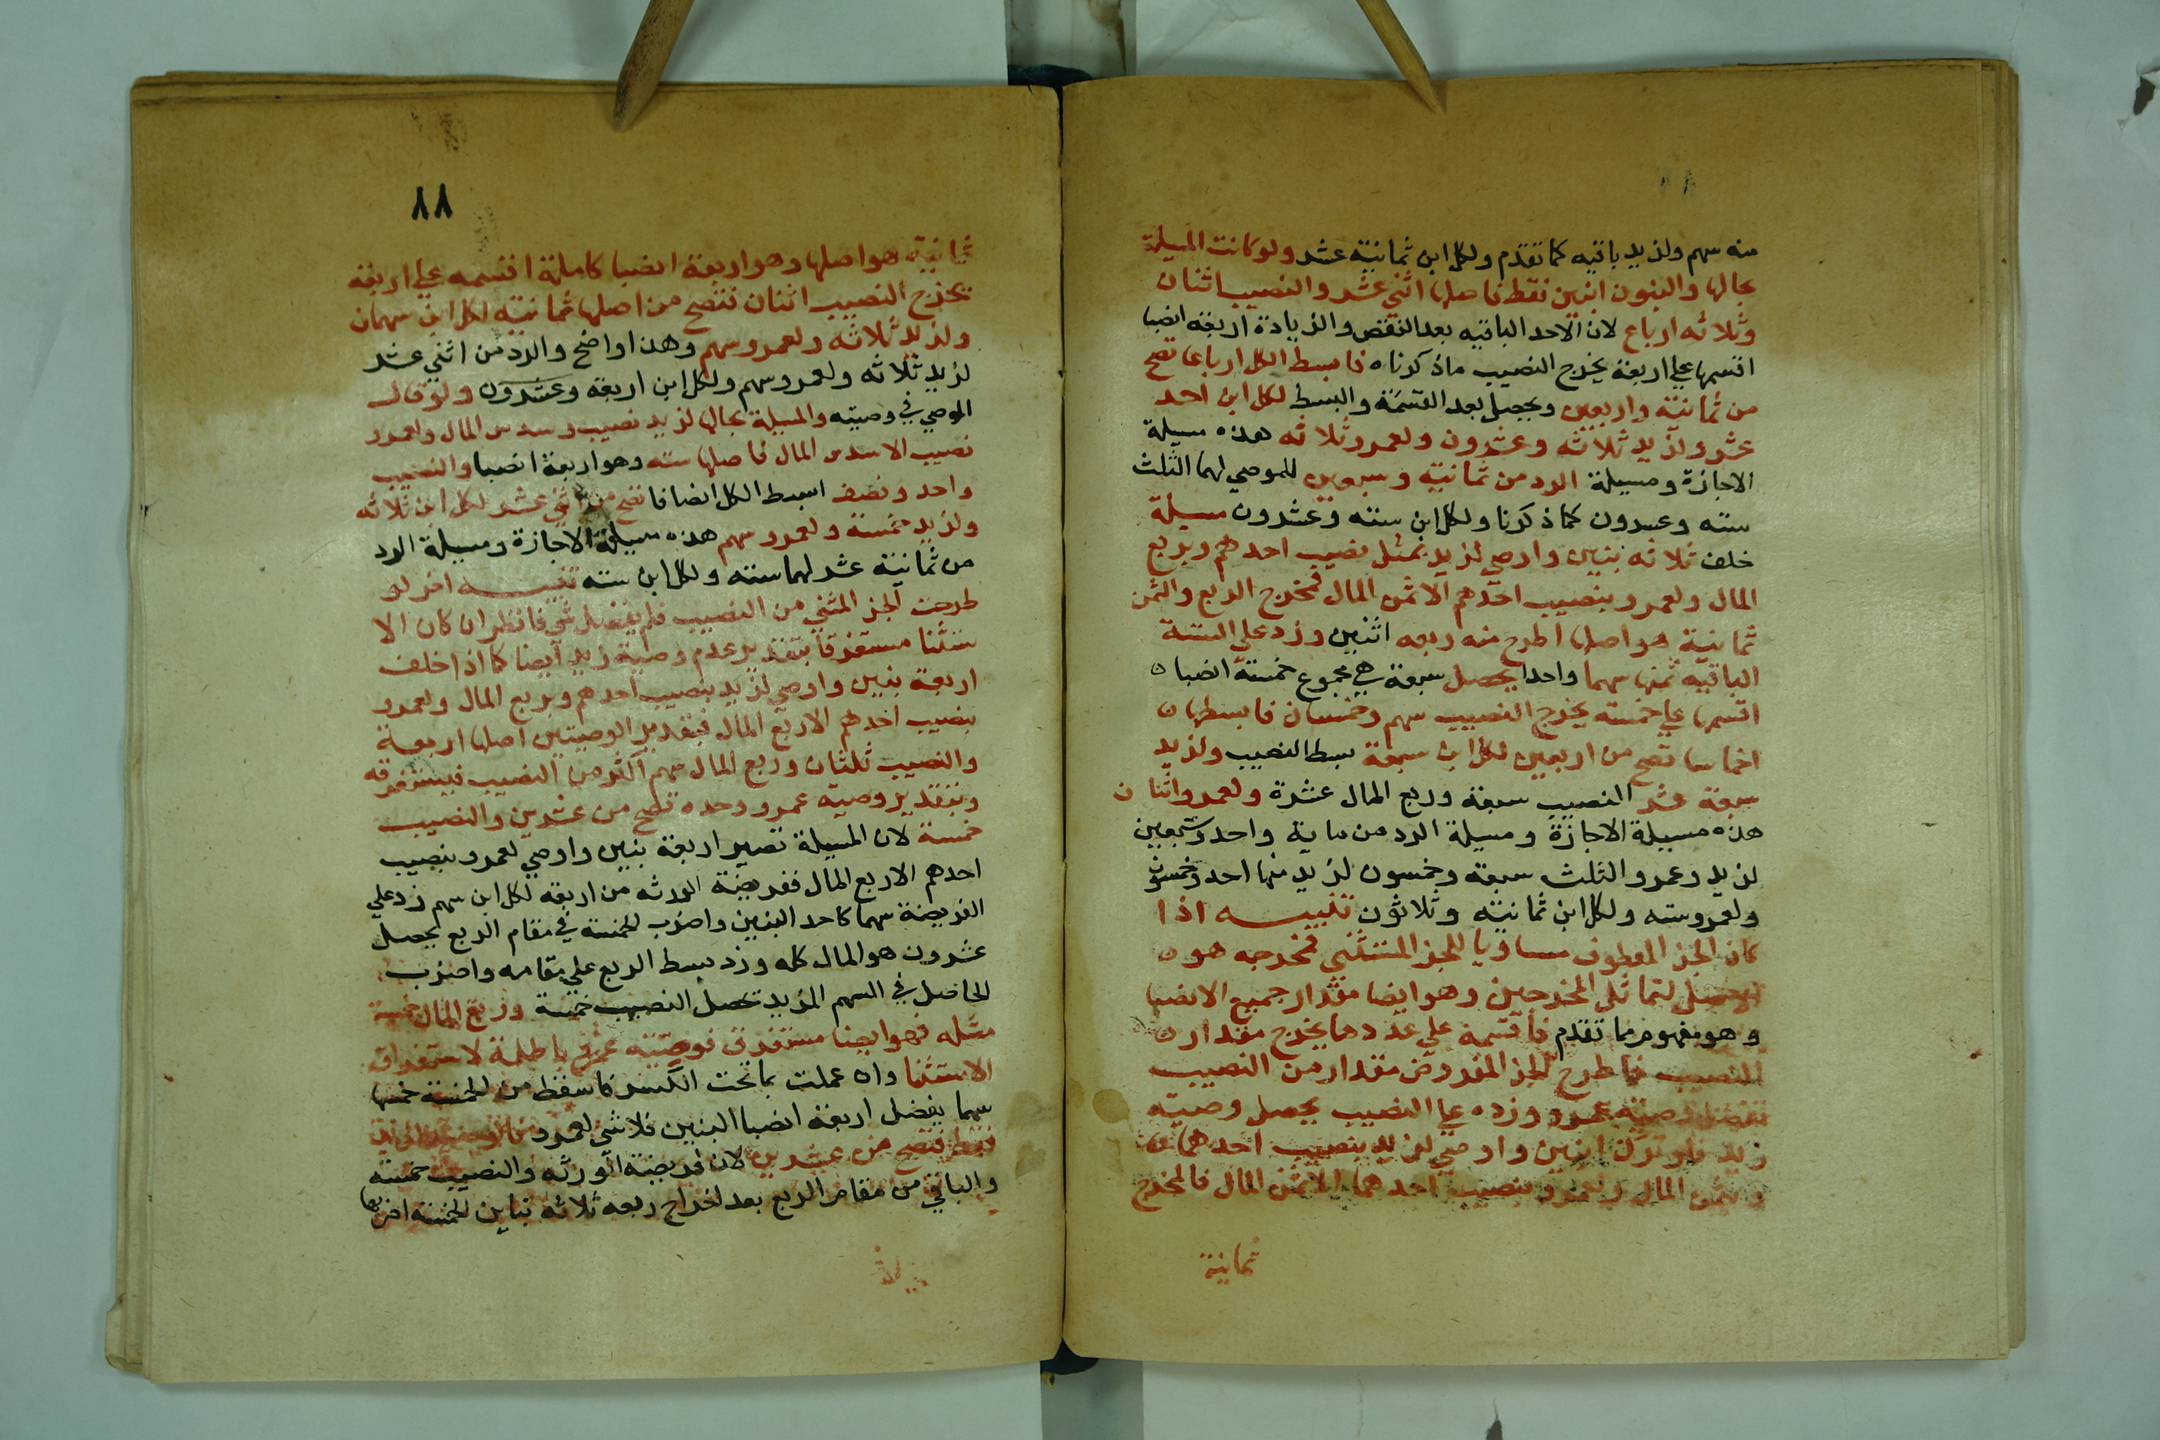 منه سهم ولزيد باقيه كما تقدم ولكل ابن ثمانية عشر ولو كانت المسيلة
بحالها والبنون ابنين نقط فاصلها اثني عشر والنصيب اثنان
وثلاثه ارباع لان الاحد الباقيه بعد النقص والزيادة اربعة انصبا
اقسمها علي اربعة يخرج النصيب ماذكرناه فابسط الكل ارباعا تصح
من ثمانية واربعين ويحصل بعد القسمة والبسط لكل ابن احد
عشر ولزيد ثلاثه وعشرون ولعمرو ثلاثه هذه مسيلة
الاجازة ومسيلة الرد من ثمانية وسبعين للموصي لهما الثلث
سته وعشرون كما ذكرنا ولكل ابن سته وعشرون مسيلة
خلف ثلاثه بنين واوصي لزيد بمثل نصيب احدهم وبربع
المال ولعمرو بنصيب احدهم الاثمن المال فمخرج الربع والثمن
ثمانية هو اصلها اطرح منه ربعه اثنين وزد علي الستة
الباقية ثمنها سهما واحدا يحصل سبعة هي مجموع خمسة انصبا ه
اقسمها علي خمسه يخرج النصيب سهم وخمسان فابسطها ن
اخماسا تصح من اربعين لكل ابن سبعة بسط النصيب ولزيد
سبعة عشر النصيب سبعة وربع المال عشرة ولعمرو اثنان
هذه مسيلة الاجازة ومسيلة الرد من ماية واحد وسبعين
لزيد وعمرو الثلث سبعة وخمسون لزيد منها احد وخمسون
ولعمرو سته ولكل ابن ثمانية وثلاثون تنبيه اذا
كان الجز المعطوف مساويا للجز المستثني فمخرجه هو ن
الاصل لتماثل المخرجين وهو ايضا مقدار جميع الانصبا
وهو مفهوم مما تقدم فاقسمه علي عددها يخرج مقدار ن
النصيب فاطرح الجز المفروض مقدار من النصيب
تفضل وصية عمرو وزده علي النصيب يحصل وصية
زيد فلو ترك ابنين واوصي لزيد بنصيب احدهما
وبثمن المال ولعمرو بنصيب احدهما الاثمن المال فالمخرج
ثمانية
٨٨
ثمانية هو اصلها وهو اربعة انصبا كاملة اقسمه علي اربعة
يخرج النصيب اثنان فتصح من اصلها ثمانية لكل ابن سهمان
ولزيد ثلاثه ولعمرو سهم وهذا واضح والرد من اثني عشر
لزيد ثلاثه ولعمرو سهم ولكل ابن اربعة وعشرون ولو قال
الموصي في وصيته والمسيلة بحالها لزيد نصيب وسدس المال ولعمرو
نصيب الاسدس المال فاصلها سته وهو اربعة انصبا والنصيب
واحد ونصف ابسط الكل انصافا تصح من اثني عشر لكل ابن ثلاثه
ولزيد خمسة ولعمرو سهم هذه مسيلة الاجازة ومسيلة الرد
من ثمانية عشر لهما سته ولكل ابن سته تنبيه اخر لو
طرحت الجز المثني من النصيب فلم يفضل شي فانظر ان كان الا
ستثنا مستغرقا بتقدير عدم وصية زيد ايضا كما اذا خلف
اربعة بنين واوصي لزيد بنصيب احدهم وبربع المال ولعمرو
بنصيب احدهم الاربع المال فبتقدير الوصيتين اصلها اربعة
والنصيب ثلثان وربع المال سهم اكثر من النصيب فيستغرقه
وبتقدير وصية عمرو وحده تصح من عشرين والنصيب
خمسة لان المسيلة تصير اربعة بنين واوصي لعمرو بنصيب
احدهم الاربع المال ففريضة الورثه من اربعة لكل ابن سهم زد علي
الفريضة سهما كاحد البنين واضرب الخمسة في مقام الربع يحصل
عشرون هو المال كله وزد بسط الربع علي مقامه واضرب
الحاصل في السهم المزيد تحصل النصيب خمسة وربع المال خمسة
مثله فهو ايضا مستغرق فوصية عمرو باطلة لاستغراق
الاستثنا وان عملت بما تحت الكسر فاسقط من الخمسة خمسها
سهما يفضل اربعة انصبا البنين فلاشي لعمرو
فقط فتصح من عشرين لان فريضة الورثه والنصيب خمسه
والباقي من مقام الربع بعد اخراج ربعه ثلاثه تباين الخمسة اضربها